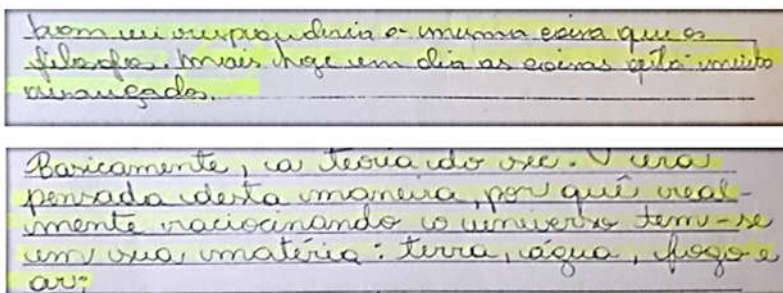 bom eu responderia a mesma coisa que os
filosofos. mais hoje em dia as coisas está muito
avançados.
Basicamente, a teoria do sec. V era
pensada desta maneira, por quê real-
mente raciocinando o universo tem-se
em sua matéria: terra, água, fogo e
ar;